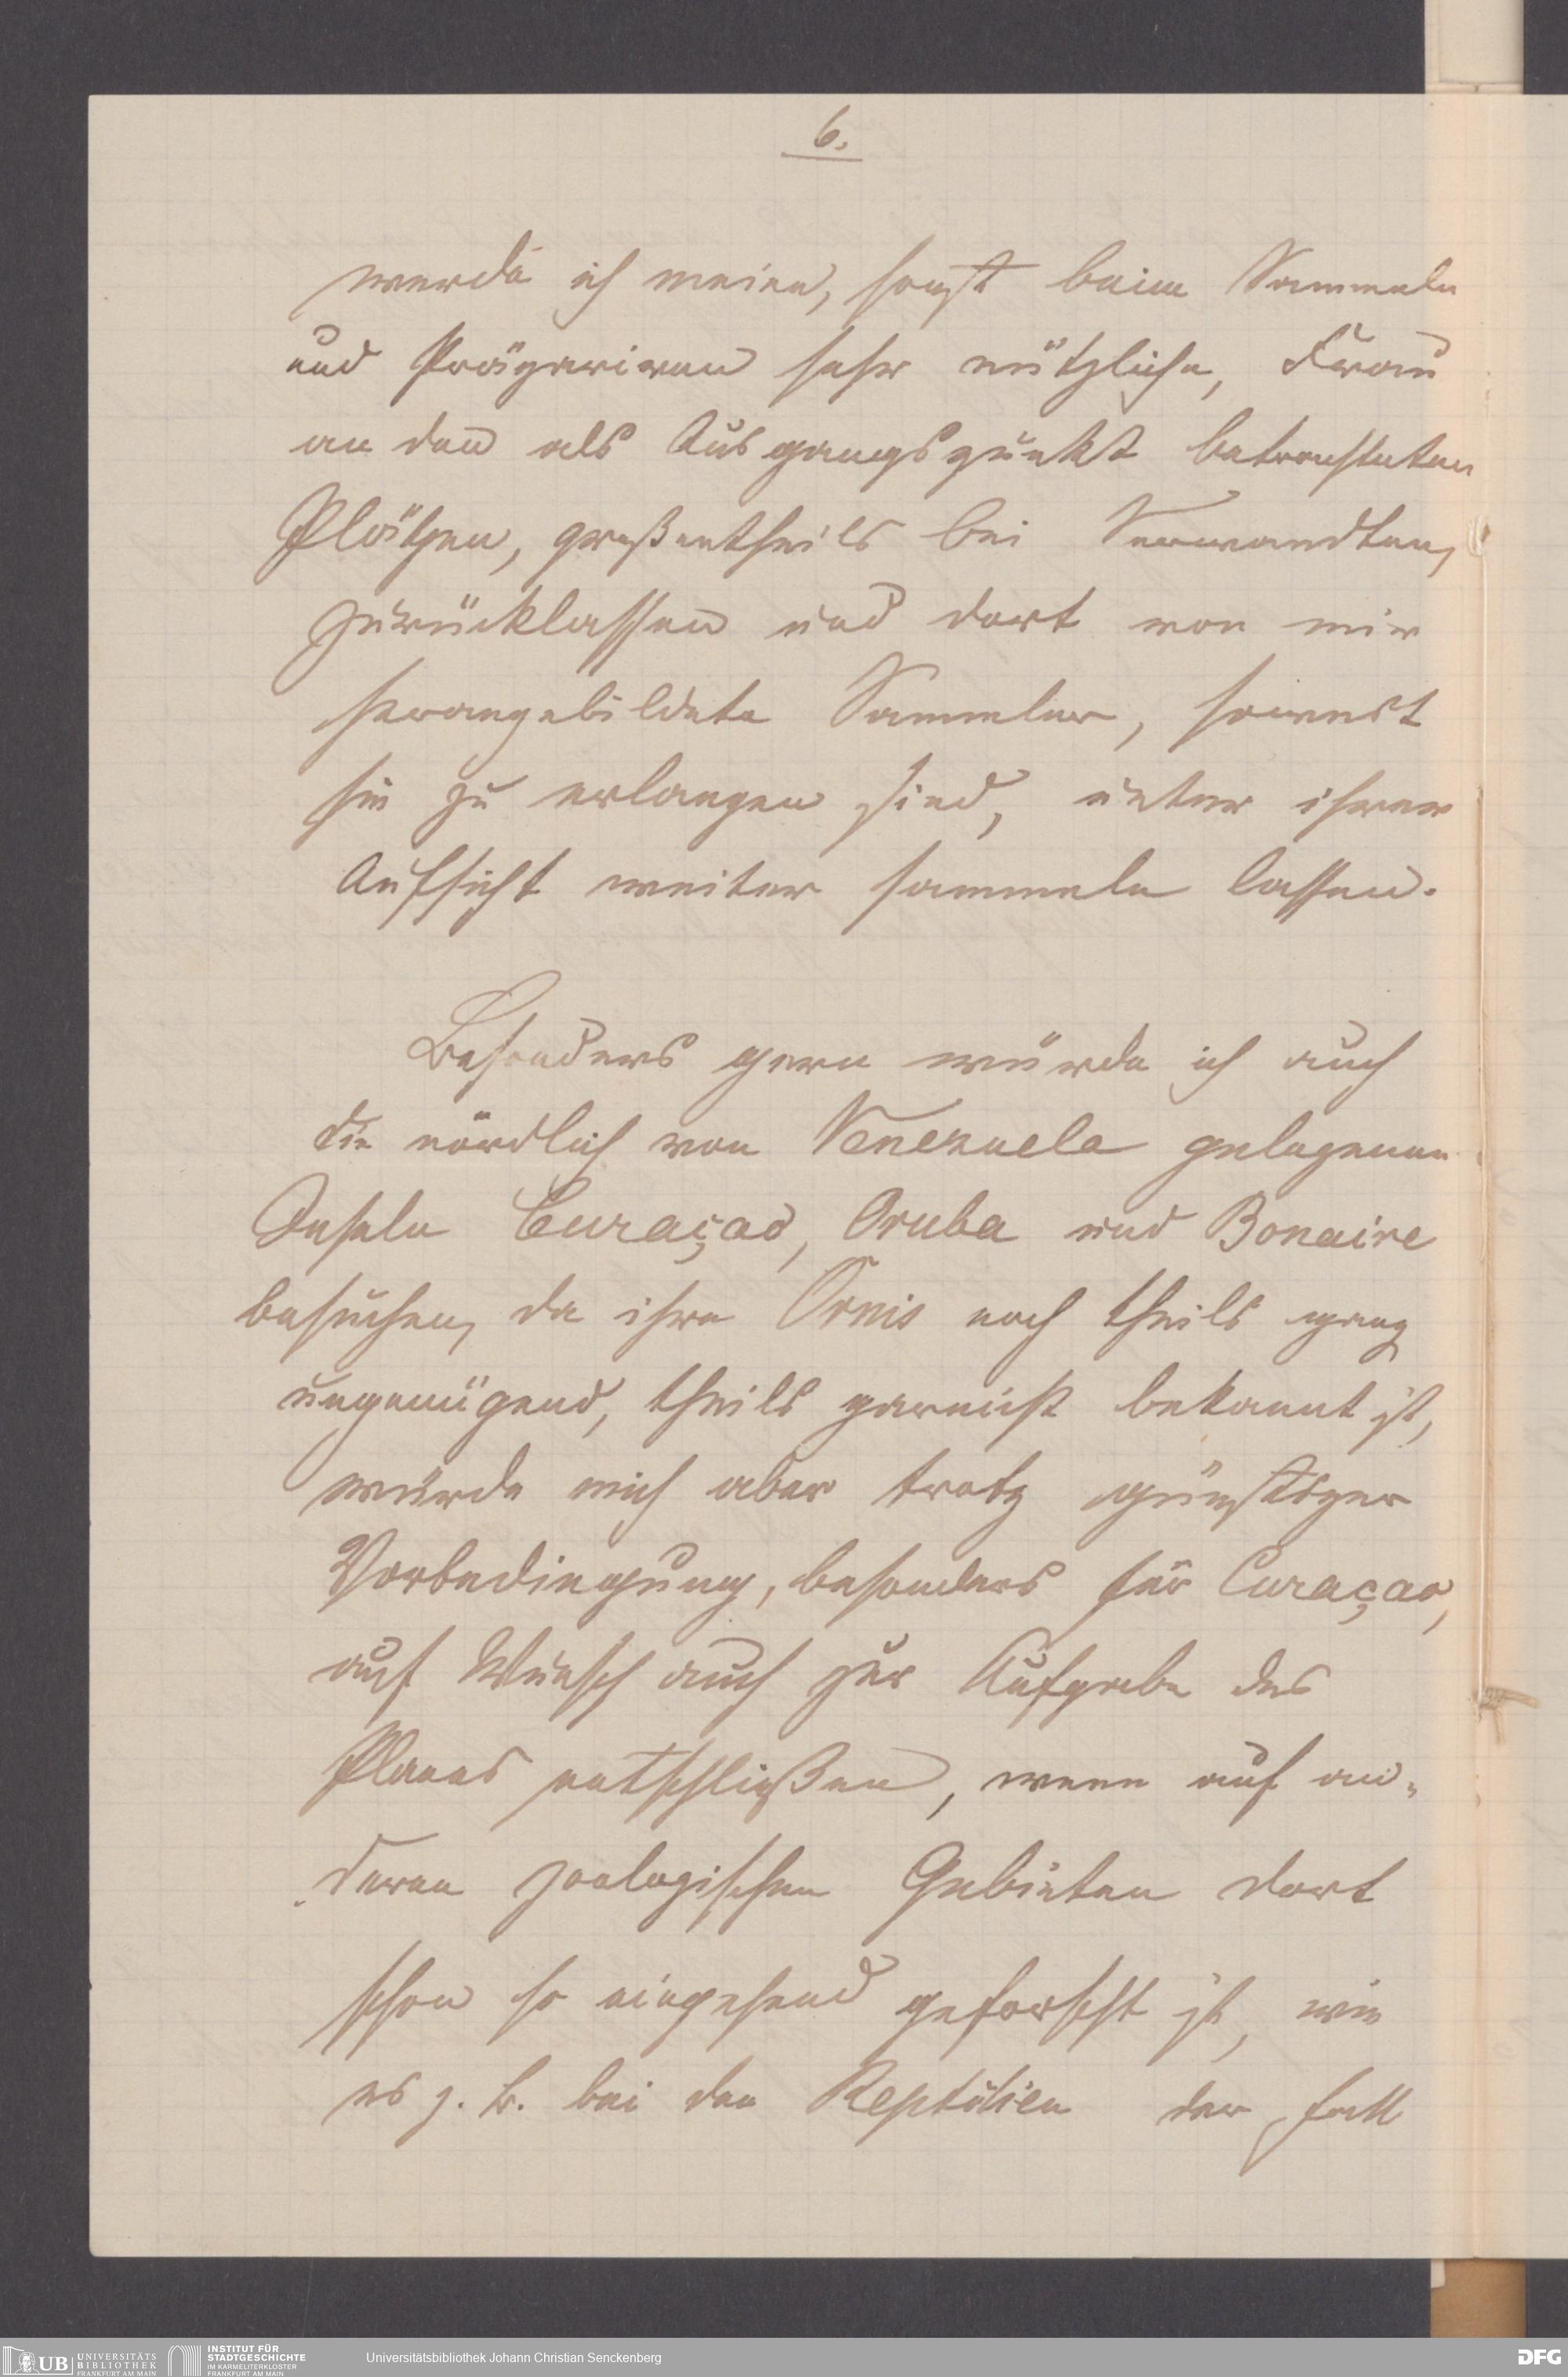 6.
werde ich meine, sonst beim Sammeln
und Präpariren sehr nützliche, Frau
an den als Ausgangspunkt betrachteten
Plätzen, großentheils bei Verwandten,
zurücklassen und dort von mir
herangebildete Sammler, soweit
sie zu erlangen sind, unter ihrer
Aufsicht weiter sammeln lassen.
Besonders gern würde ich auch
die nördlich von Venezuela gelegenen
Inseln Curaçao, Aruba und Bonaire
besuchen, da ihre Ornis noch theils ganz
ungenügend, theils garnicht bekannt ist,
würde mich aber trotz günstiger
Vorbedingung, besonders für Curaçao,
auf Wunsch auch zur Aufgabe des
Planes entschließen, wenn auf an-
deren zoologischen Gebieten dort
schon so eingehend geforscht ist, wie
es z. B. bei den Reptilien der Fall
UB UNIVERSITÄTS BIBLIOTHEK FRANKFURT AM MAIN
INSTITUT FÜR STADTGESCHICHTE IM KARMELITERKLOSTER FRANKFURT AM MAIN
Universitätsbibliothek Johann Christian Senckenberg
DFG